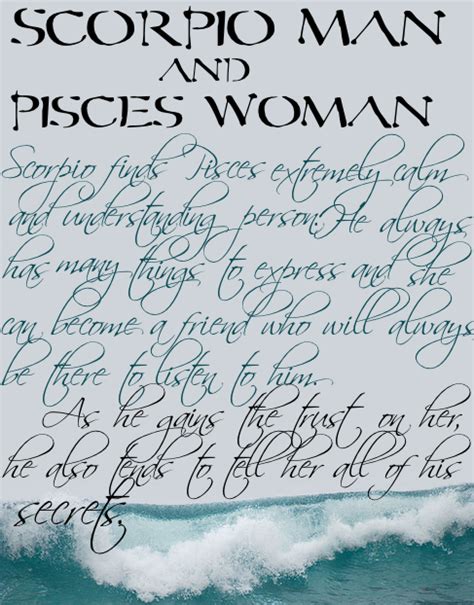 SCORPIO MAN
AND
PISCES WOMAN
Scorpio finds Pisces extremely calm
and understanding person. He always
has many things to express and she
can become a friend who will always
be there to listen to him.
As he gains the trust on her,
he also tends to tell her all of his
secrets.